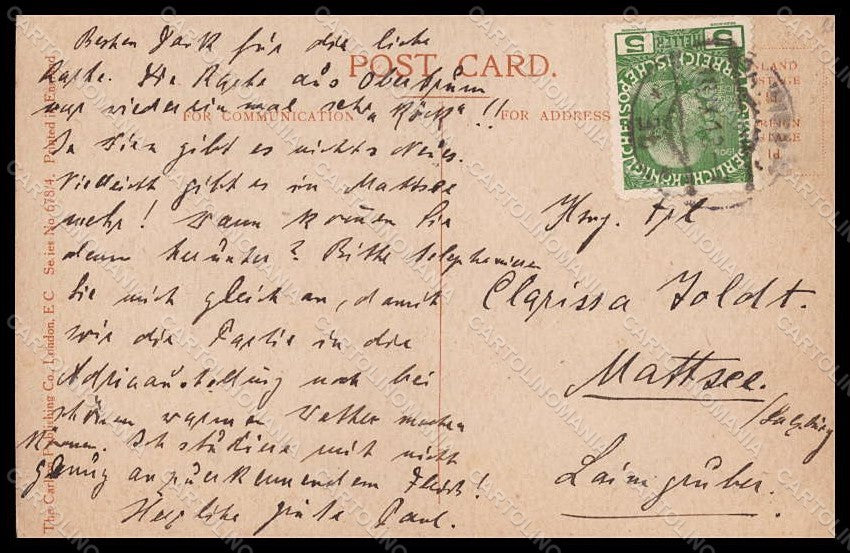 POST CARD.
FOR COMMUNICATION
FOR ADDRESS
INLAND
Printed in England
The Carlton Publishing Co., London, E.C. Series No. 678/4.
5 HELLER 5
1908
Besten Dank für die liebe
Karte. Die Karte aus
war wieder einmal sehr "
In Wien gibt es nichts Neues.
Vielleicht gibt es in Mattsee
mehr! Wann kommen Sie
denn herunter? Bitte telephonieren
Sie mich gleich an, damit
wir die Partie in die
Adriaausstellung noch bei
schönen warmen Wetter machen
können. Ich studiere mit nicht
genug anzuerkennendem Fleiß!
Herzliche Grüße Paul.
Frl
Clarissa Zoldt.
Mattsee.
/Salzburg
Laimgruber.
CARTOLINOMANIA